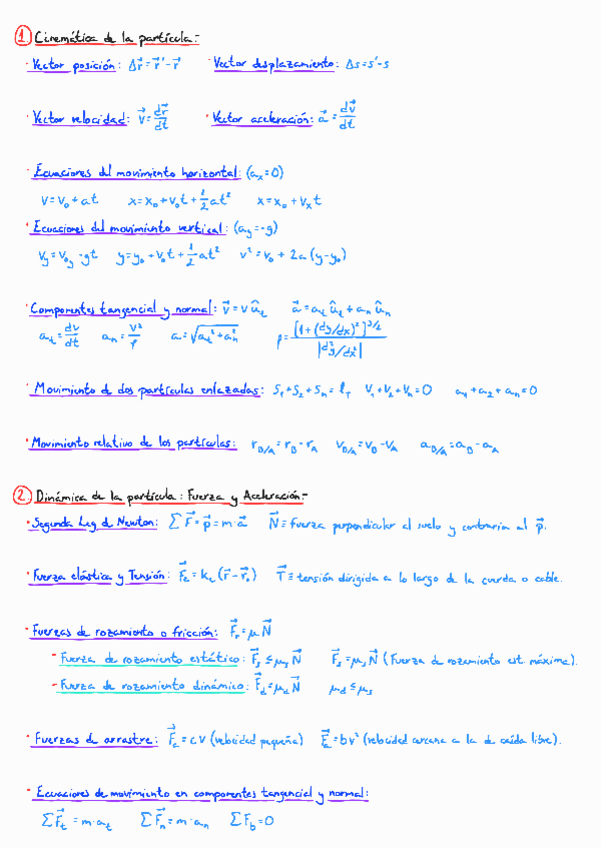 ① Cinemática de la partícula:-
· Vector posición: Δr⃗ = r⃗' - r⃗ · Vector desplazamiento: Δs = s' - s
· Vector velocidad: v⃗ = dr⃗/dt · Vector aceleración: a⃗ = dv⃗/dt
· Ecuaciones del movimiento horizontal: (aₓ = 0)
v = v₀ + at x = x₀ + v₀t + 1/2 at² x = x₀ + vₓt
· Ecuaciones del movimiento vertical: (a_y = -g)
v_y = v₀_y - gt y = y₀ + v₀t + 1/2 at² v² = v₀ + 2a (y - y₀)
· Componentes tangencial y normal: v⃗ = v û_t a⃗ = a_t û_t + a_n û_n
a_t = dv/dt a_n = v²/ρ a = √(a_t² + a_n²) ρ = [1 + (dy/dx)²]^3/2 / |d²y/dx²|
· Movimiento de dos partículas enlazadas: S₁ + S₂ + S_n = l_T V₁ + V₂ + V_n = 0 a₁ + a₂ + a_n = 0
· Movimiento relativo de las partículas: r_B/A = r_B - r_A v_B/A = v_B - v_A a_B/A = a_B - a_A
② Dinámica de la partícula: Fuerza y Aceleración-
· Segunda Ley de Newton: ∑F⃗ = p⃗ = m·a⃗ N⃗ ≡ fuerza perpendicular al suelo y contraria al p⃗.
· Fuerza elástica y Tensión: F⃗_e = k_e (r⃗ - r⃗₀) T⃗ ≡ tensión dirigida a lo largo de la cuerda o cable.
· Fuerzas de rozamiento o fricción: F⃗_r = μ N⃗
- Fuerza de rozamiento estático: F⃗_s ≤ μ_s N⃗ F⃗_s = μ_s N⃗ (Fuerza de rozamiento est. máxima).
- Fuerza de rozamiento dinámico: F⃗_d = μ_d N⃗ μ_d ≤ μ_s
· Fuerzas de arrastre: F⃗_a = cv (velocidad pequeña) F⃗_a = bv² (velocidad cercana a la de caída libre).
· Ecuaciones de movimiento en componentes tangencial y normal:
∑F⃗_t = m·a_t ∑F⃗_n = m·a_n ∑F_b = 0